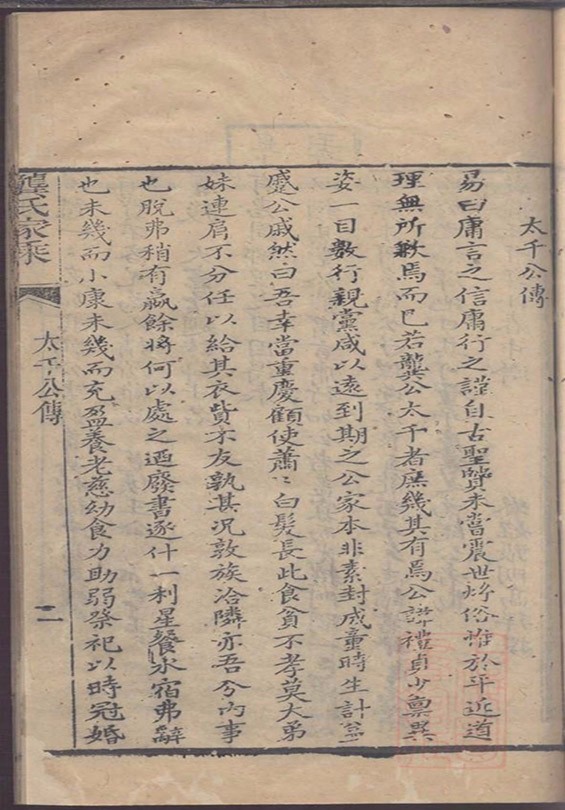 太千公傳
易曰庸言之信庸行之謹自古聖賢未嘗震世炫俗惟於平近道
理無所歉焉而已若龔公太千者庶幾其有焉公諱禮貞少稟異
姿一目數行親黨咸以遠到期之公家本非素封成童時生計益
蹙公戚然曰吾幸當重慶顧使蕭〻白髮長此食貧不孝莫大弟
妹連肩不分任以給其衣貲不友孰甚況敦族洽隣亦吾分內事
也脫弗稍有贏餘將何以處之迺廢書逐什一利星餐水宿弗辭
也未幾而小康未幾而充盈養老慈幼食力助弱祭祀以時冠婚
龔氏家乘
太千公傳
二